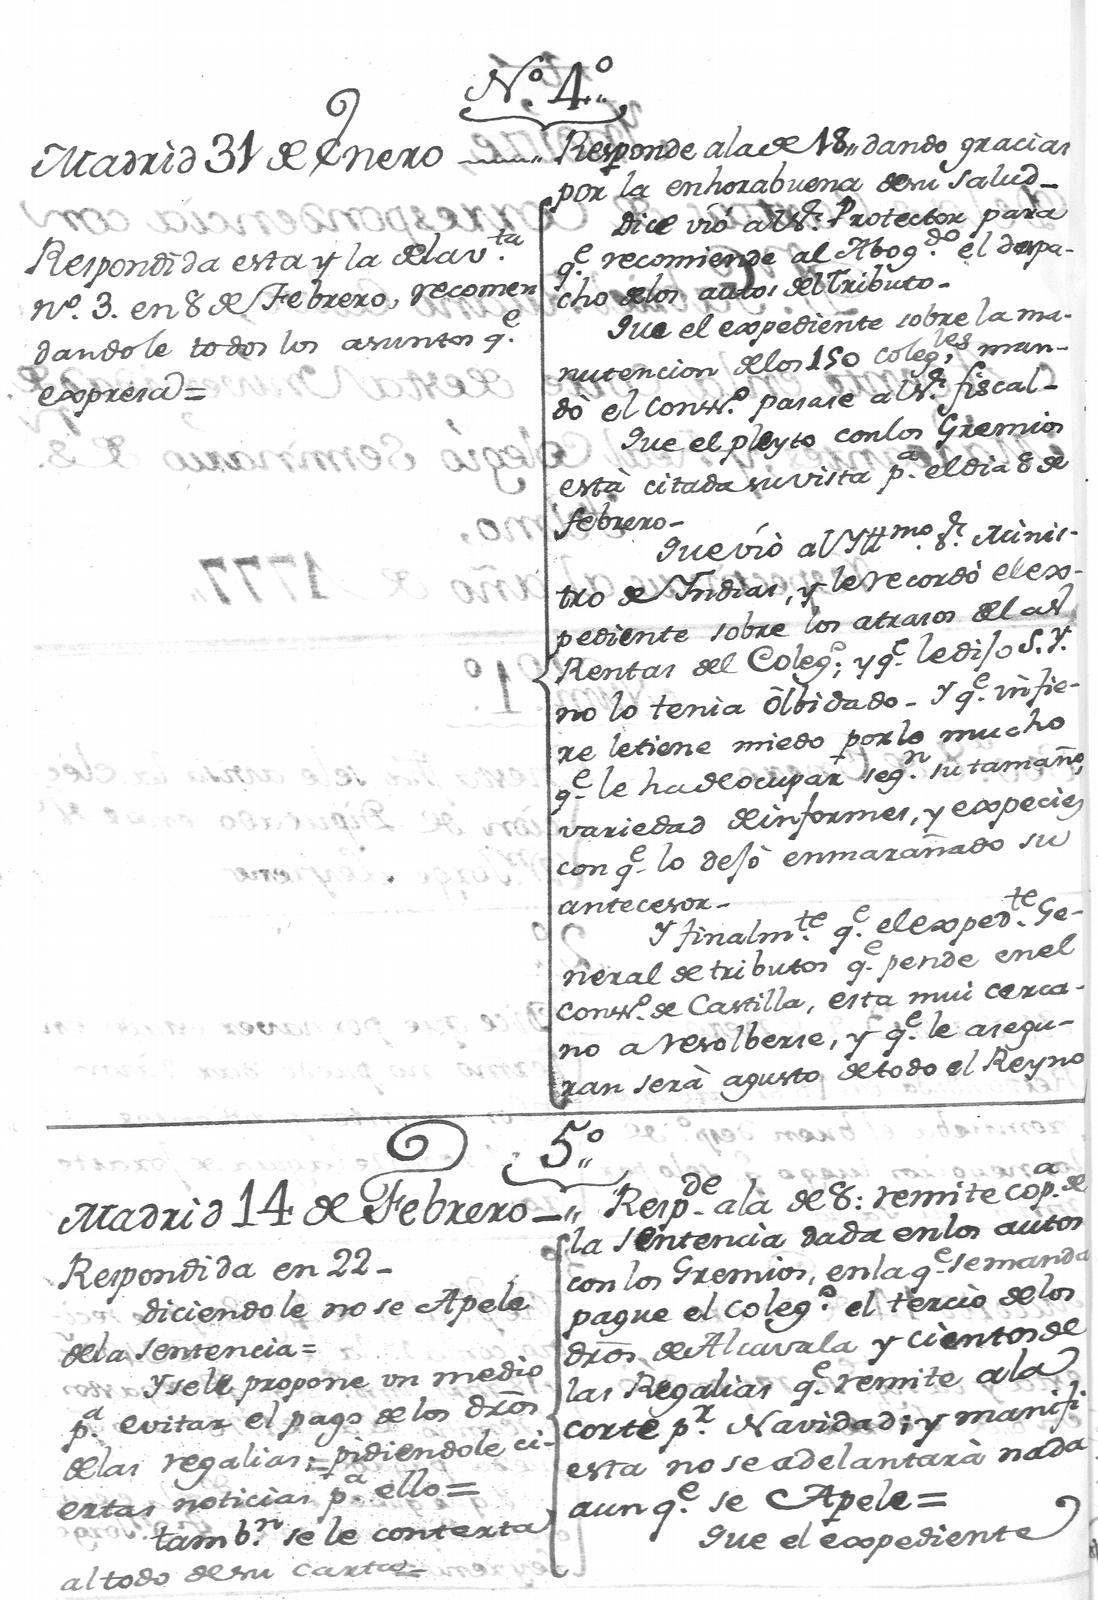 N.º 4.º
Madrid 31 de Enero
Respondida esta y la de la v.ta
nº. 3. en 8 de Febrero, recomen
dandole todos los asuntos q.e
expresa=
Responde ala de 18,, dando gracias
por la enhorabuena de su salud_
Dice vió al S.r Protector para
q.e recomiende al Abog.do el despa-
cho de los autos del Tributo_
Que el expediente sobre la ma-
nutencion de los 150 coleg.les man-
dó el Cons.º pasase al S.r fiscal_
Que el pleyto con los Gremios
està citada su vista p.a el dia 8 de
febrero_
Que vió al Yll.mo S.r Minis-
tro de Yndias, y le recordó el ex-
pediente sobre los atrasos de las
Rentas del Coleg.º; y q.e le dijo S.Y.
no lo tenia òlbidado_ Y q.e infie-
re le tiene miedo por lo mucho
q.e le ha de ocupar seg.n su tamaño,
variedad de informes, y expecies
con q.e lo dejò enmarañado su
antecesor_
Y finalm.te q.e el exped.te Ge-
neral de tributos q.e pende en el
Cons.º de Castilla, esta mui cerca-
no a resolberse, y q.e le asegu-
ran serà agusto de todo el Reyno
5.º
Madrid 14 de Febrero
Respondida en 22_
diciendole no se Apele
de la sentencia=
Y se le propone un medio
p.a evitar el pago de los dr̃os
de las regalias; pidiendole ci-
ertas noticias p.a ello=
tamb.n se le contexta
al todo de su carta=
Resp.de ala de 8: remite cop.a de
la sentencia dada en los autos
con los Gremios, en la q.e se manda
pague el coleg.º el tercio de los
dr̃os de Alcavala y cientos de
las Regalias q.e remite a la
corte p.r Navidad; y manifi
esta no se adelantarà nada
aunq.e se Apele=
Que el expediente